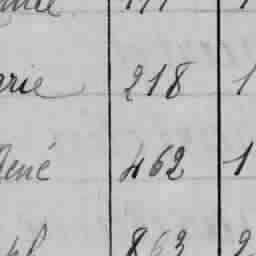 arie 218 1
René 462 1
863 2